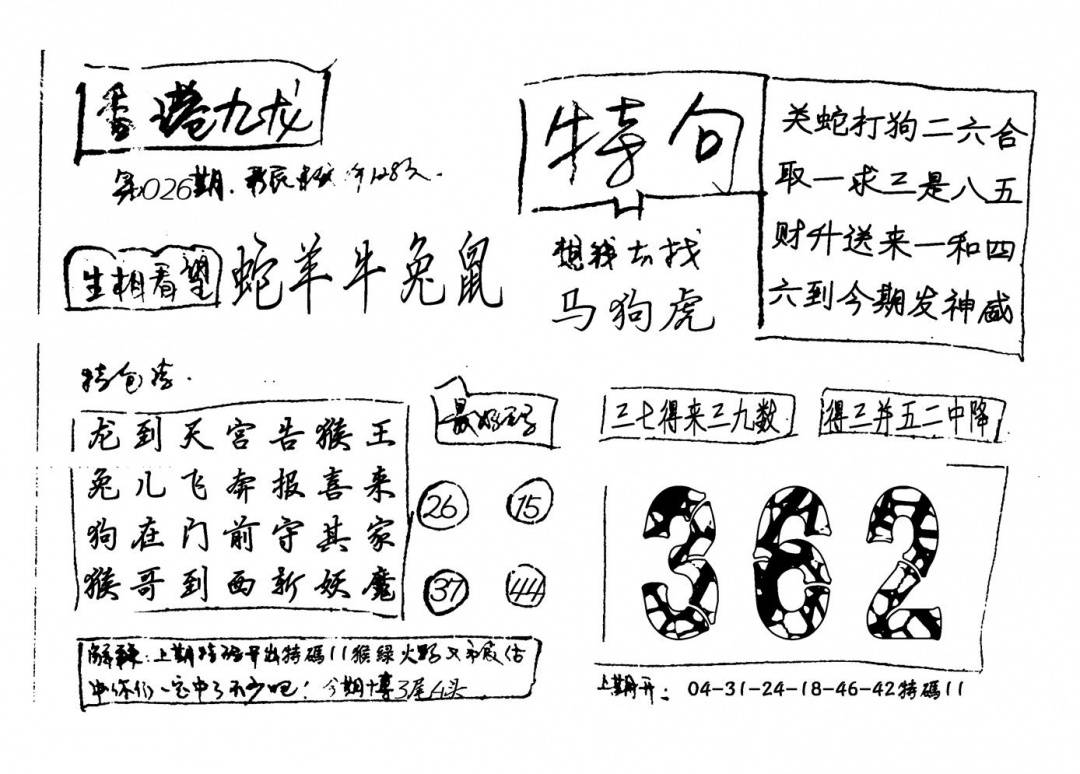 香港九龙
第026期.
生相看望
蛇羊牛兔鼠
特句
想我去找
马狗虎
关蛇打狗二六合
取一求三是八五
财升送来一和四
六到今期发神威
特包
龙到天宫告猴王
兔儿飞奔报喜来
狗在门前守其家
猴哥到西新妖魔
最好
26 15
37 44
三七得来三九数
得三并五二中降
362
解释:上期特码开出特碼11猴绿火野又
中你们一定中了不少吧!今期博3尾4头
上期开: 04-31-24-18-46-42特碼11